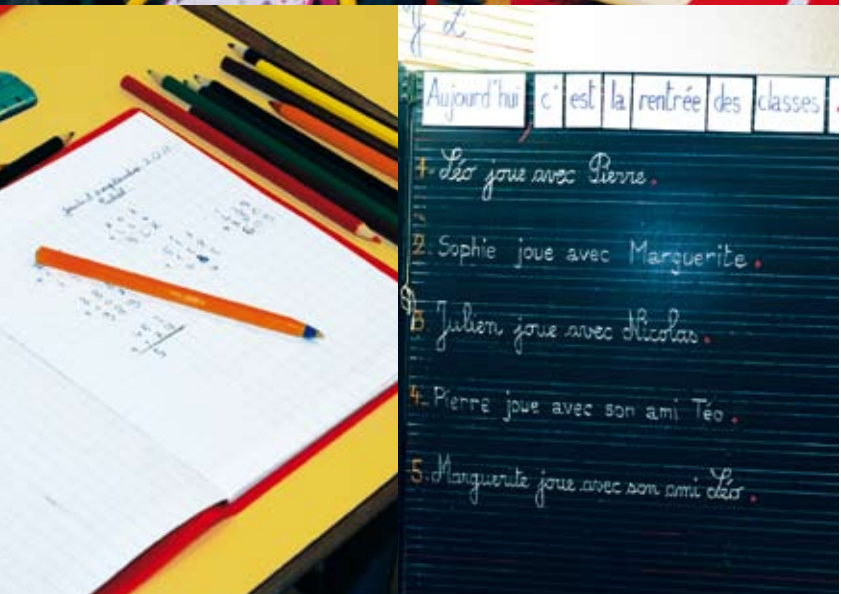 Aujourd'hui c' est la rentrée des classes .
1. Léo joue avec Pierre.
2. Sophie joue avec Marguerite.
3. Julien joue avec Nicolas.
4. Pierre joue avec son ami Téo.
5. Marguerite joue avec son ami Léo.